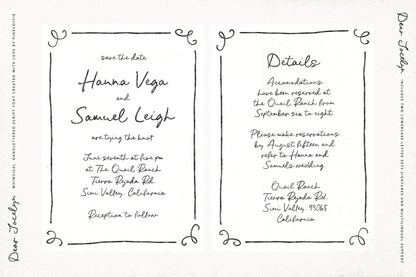 save the date
Hanna Vega
and
Samuel Leigh
are tying the knot
June seventh at five pm
at The Quail Ranch
Tierra Rejada Rd.
Simi Valley, California
Reception to follow
Details
Accomodations
have been reserved at
the Quail Ranch from
September six to eight
Please make reservations
by August fifteen and
refer to Hanna and
Samuels wedding.
Quail Ranch
Tierra Rejada Rd.
Simi Valley, 93065
California
Dear Jocelyn
WHIMSICAL HANDLETTERED SCRIPT FONT CREATED WITH LOVE BY PINKCOFFIE
Dear Jocelyn
INCLUDES TWO LOWERCASE LETTER SETS, LIGATURES AND MULTILINGUAL SUPPORT